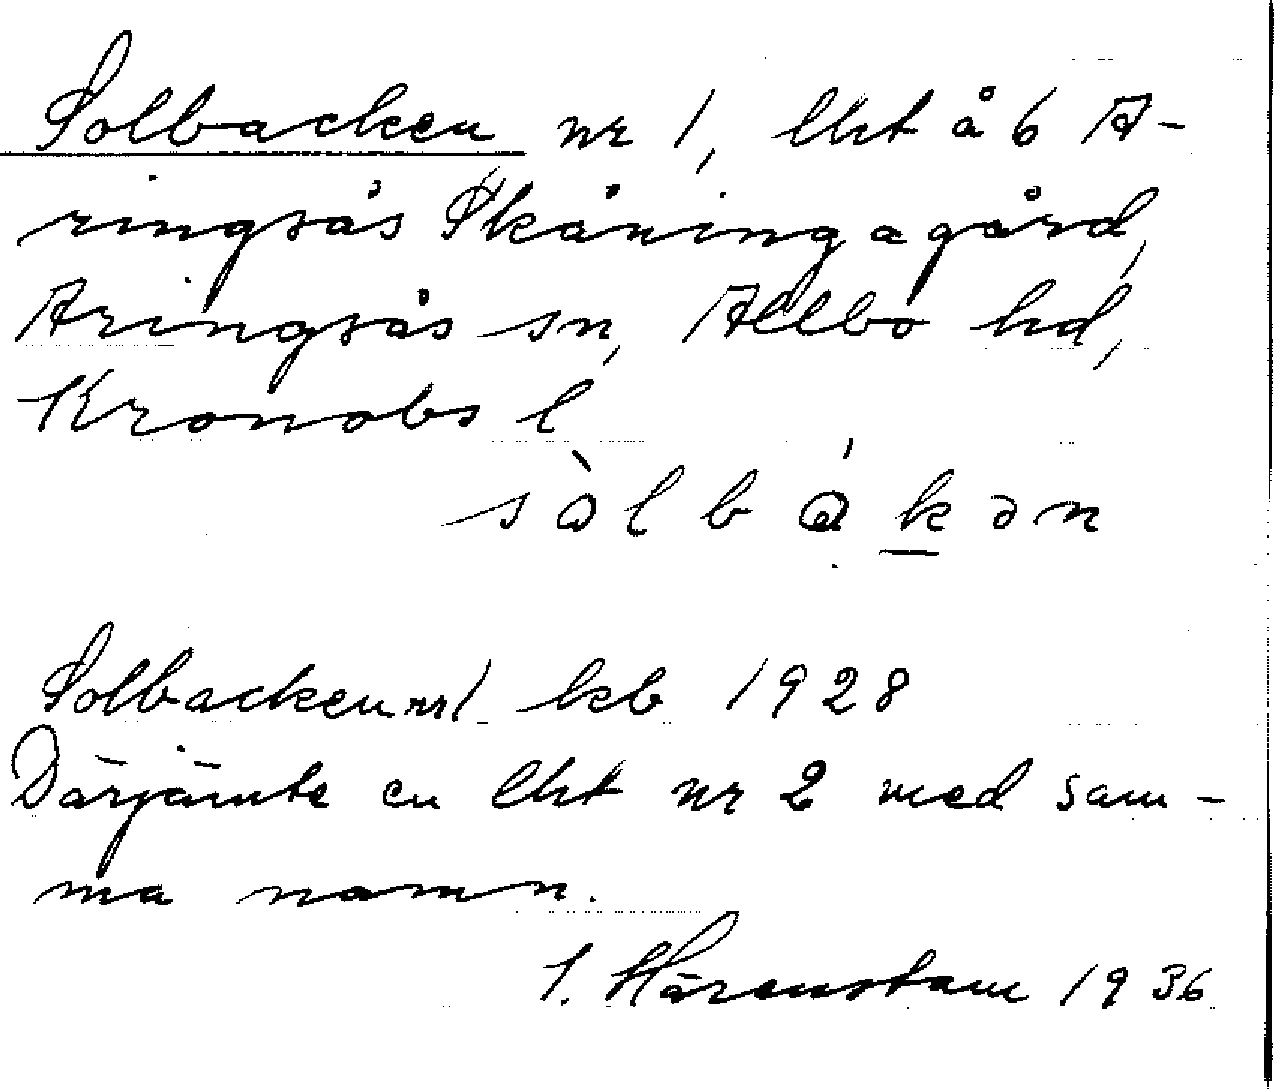 Solbacken nr 1, lht å 6 A-
ringsås Skåningagård,
Aringsås sn, Allbo hd,
Kronobs l
sòlbákən
Solbacken nr 1 kb 1928
Därjämte en lht nr 2 med sam-
ma namn.
I. Härenstam 1936